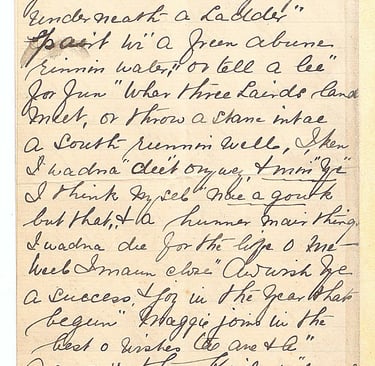 underneath a Ladder"
Spait wi' a freen abune
rinnin water," or tell a lee"
for fun" Whar three Lairds land
meet, or throw a stane intae
a South runnin well, I ken
I wadna" dee't onywey, & min' "Ye"
I think mysel "nae a gowk
but that, & a hunner mair things
I wadna dee for the life o me—
Weel I maun close" And wish Ye
a success, & Joy in the Year thats
begun" Maggie joins in the
best o Wishes tae ane & a'"